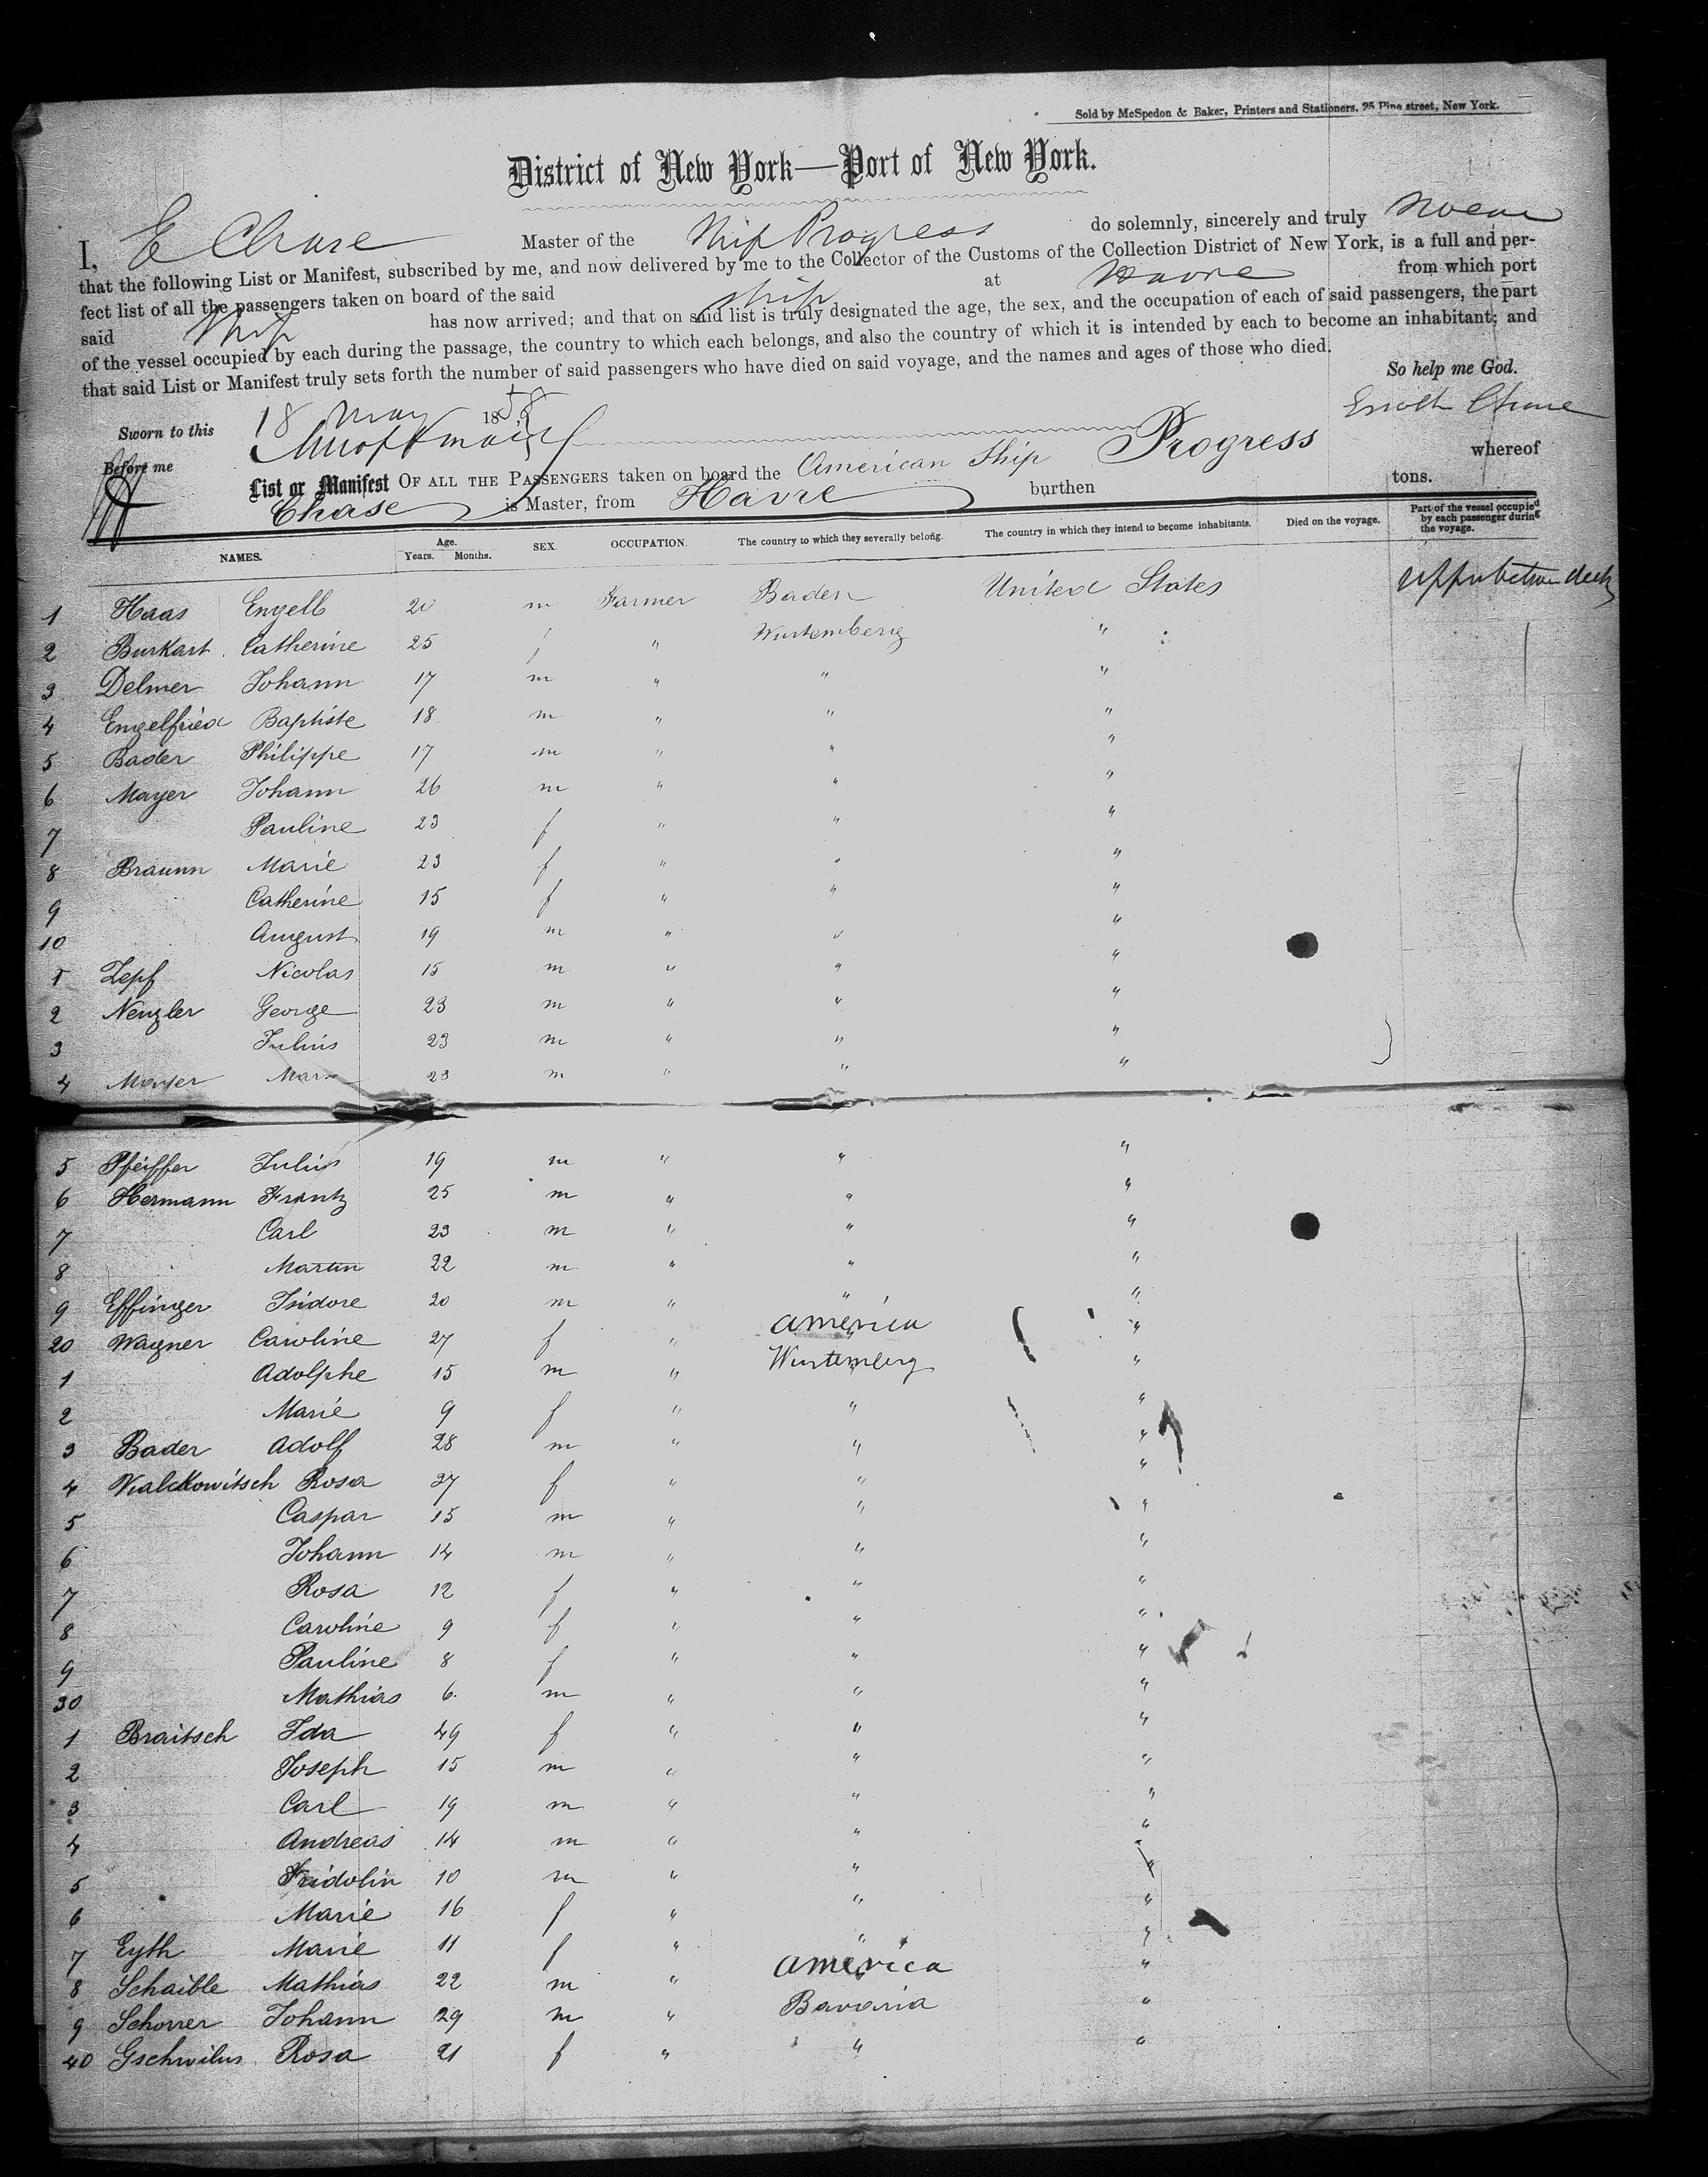 Sold by McSpedon & Baker, Printers and Stationers, 25 Pine street, New York.
District of New York—Port of New York.
I, E Chase Master of the Ship Progress do solemnly, sincerely and truly swear
that the following List or Manifest, subscribed by me, and now delivered by me to the Collector of the Customs of the Collection District of New York, is a full and per-
fect list of all the passengers taken on board of the said ship at Havre from which port
said Ship has now arrived; and that on said list is truly designated the age, the sex, and the occupation of each of said passengers, the part
of the vessel occupied by each during the passage, the country to which each belongs, and also the country of which it is intended by each to become an inhabitant; and
that said List or Manifest truly sets forth the number of said passengers who have died on said voyage, and the names and ages of those who died.
So help me God.
Sworn to this 18 May 1858 Chase
Before me
List or Manifest OF ALL THE PASSENGERS taken on board the American Ship Progress whereof
Chase is Master, from Havre burthen tons.
NAMES. Age. Years. Months. SEX. OCCUPATION. The country to which they severally belong. The country in which they intend to become inhabitants. Died on the voyage. Part of the vessel occupied by each passenger during the voyage.
1 Haas Engelb 20 m Farmer Baden United States deck
2 Burkart Catherine 25 f " Wurtemberg "
3 Delmer Johann 17 m " " "
4 Engelfried Baptiste 18 m " " "
5 Bader Philippe 17 m " " "
6 Mayer Johann 26 m " " "
7 Pauline 23 f " " "
8 Braunn Marie 23 f " " "
9 Catherine 15 f " " "
10 August 19 m " " "
1 Zepf Nicolas 15 m " " "
2 Nenzler George 23 m " " "
3 Julius 23 m " " "
4 Mayer 23 m " " "
5 Pfeiffer Julius 19 m " " "
6 Hermann Frantz 25 m " " "
7 Carl 23 m " " "
8 Martin 22 m " " "
9 Effinger Isidore 20 m " " "
20 Wagner Caroline 27 f " America "
1 Adolphe 15 m " Wurtemberg "
2 Marie 9 f " " "
3 Bader Adolf 28 m " " "
4 Walckowitsch Rosa 37 f " " "
5 Caspar 15 m " " "
6 Johann 14 m " " "
7 Rosa 12 f " " "
8 Caroline 9 f " " "
9 Pauline 8 f " " "
30 Mathias 6 m " " "
1 Braitsch Ida 49 f " " "
2 Joseph 15 m " " "
3 Carl 19 m " " "
4 Andreas 14 m " " "
5 Fridolin 10 m " " "
6 Marie 16 f " " "
7 Eyth Marie 11 f " " "
8 Schaible Mathias 22 m " America "
9 Schorrer Johann 29 m " Bavaria "
40 Gschwilus Rosa 21 f " " "